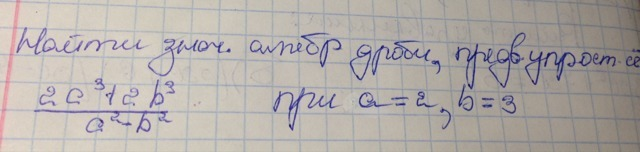 Найти знач. алгебр дроби, предв. упрост. её
2a³+2b³
a²-b²
при a=2, b=3